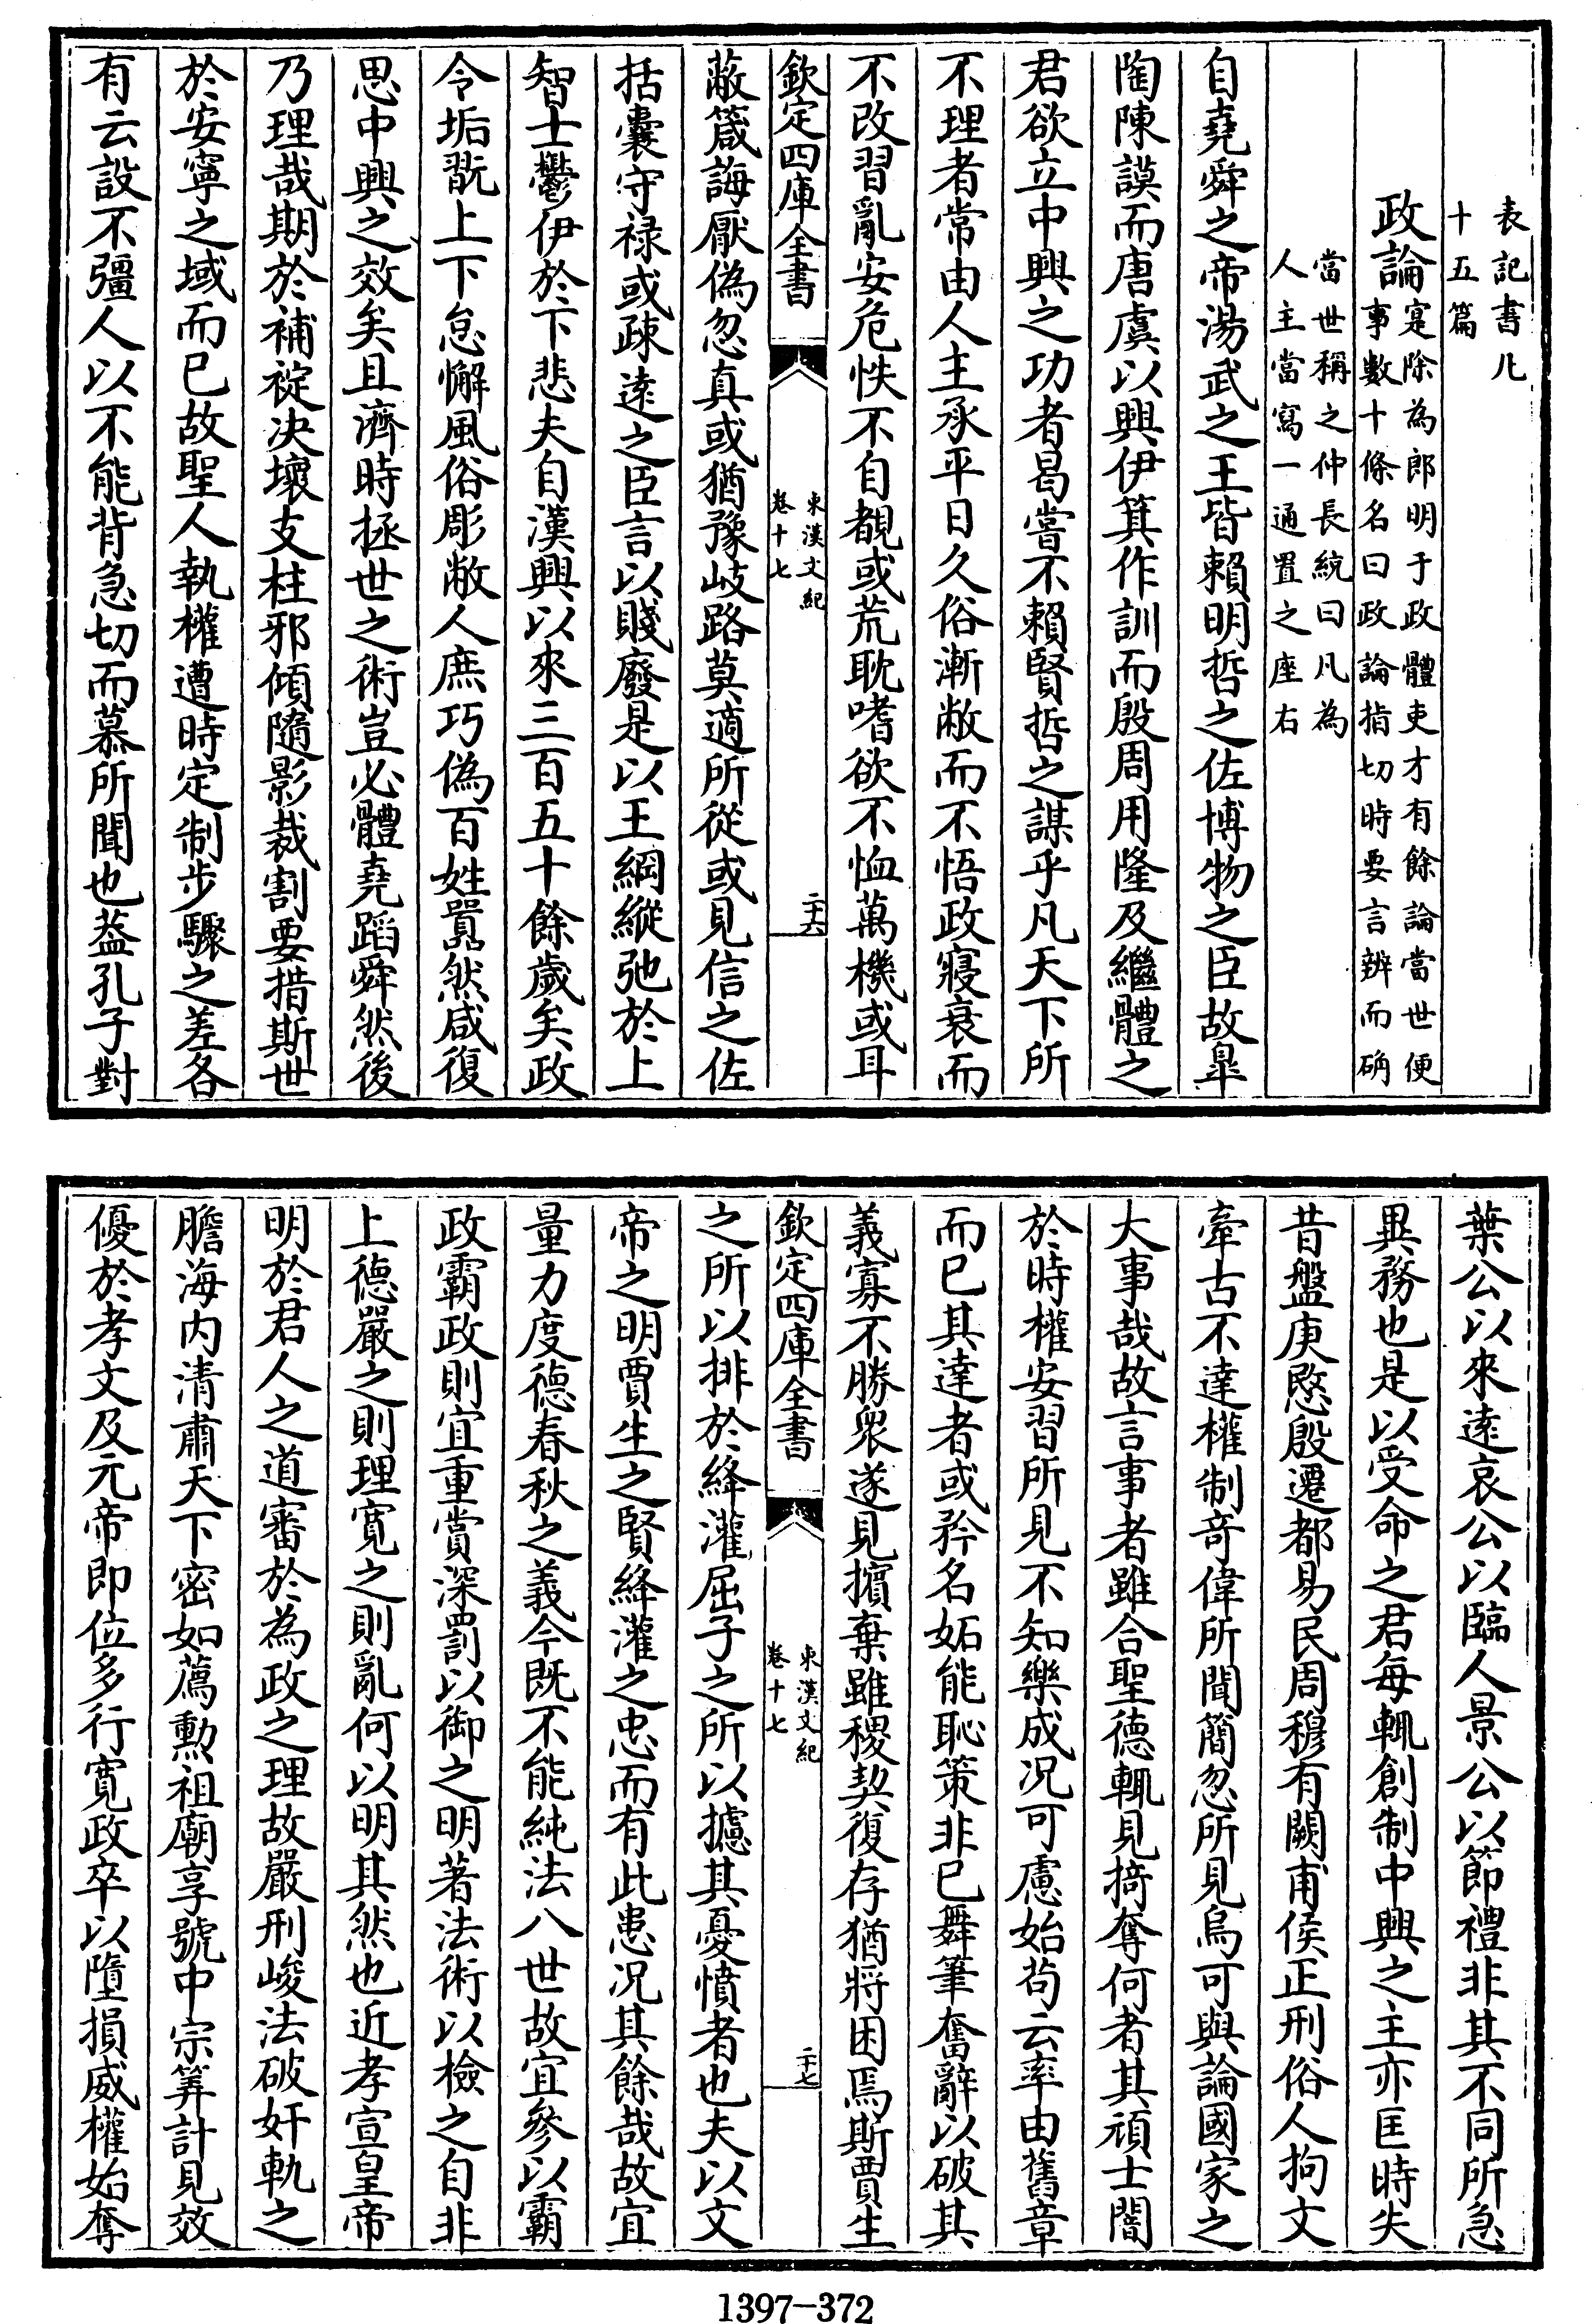 表記書凡
十五篇
政論寔除為郎明于政體吏才有餘論當世便
事數十條名曰政論指切時要言辨而确
當世稱之仲長統曰凡為
人主當寫一通置之座右
自堯舜之帝湯武之王皆賴明哲之佐博物之臣故臯
陶陳謨而唐虞以興伊箕作訓而殷周用隆及繼體之
君欲立中興之功者曷嘗不賴賢哲之謀乎凡天下所
不理者常由人主承平日久俗漸敝而不悟政寢衰而
不改習亂安危怢不自覩或荒耽嗜欲不恤萬機或耳
欽定四庫全書
東漢文紀
卷十七
二十六
蔽箴誨厭偽忽真或猶豫岐路莫適所從或見信之佐
括囊守禄或疎逺之臣言以賤廢是以王綱縱弛於上
智士鬱伊於下悲夫自漢興以來三百五十餘歲矣政
令垢翫上下怠懈風俗彫敝人庶巧偽百姓囂然咸復
思中興之效矣且濟時拯世之術豈必體堯蹈舜然後
乃理哉期於補䘺决壞支柱邪傾隨影裁割要措斯世
於安寧之域而已故聖人執權遭時定制步驟之差各
有云設不彊人以不能背急切而慕所聞也葢孔子對
葉公以來逺哀公以臨人景公以節禮非其不同所急
異務也是以受命之君每輒創制中興之主亦匡時失
昔盤庚愍殷遷都易民周穆有闕甫侯正刑俗人拘文
牽古不達權制奇偉所聞簡忽所見烏可與論國家之
大事哉故言事者雖合聖德輒見掎奪何者其頑士闇
於時權安習所見不知樂成况可慮始茍云率由舊章
而已其達者或矜名妬能恥策非已舞筆奮辭以破其
義寡不勝衆遂見擯棄雖稷契復存猶將困焉斯賈生
欽定四庫全書
東漢文紀
卷十七
二十七
之所以排於絳灌屈子之所以攄其憂憤者也夫以文
帝之明賈生之賢絳灌之忠而有此患况其餘哉故宜
量力度德春秋之義今既不能純法八世故宜參以霸
政霸政則宜重賞深罰以御之明著法術以檢之自非
上德嚴之則理寛之則亂何以明其然也近孝宣皇帝
明於君人之道審於為政之理故嚴刑峻法破奸軌之
膽海内清肅天下密如薦勲祖廟享號中宗筭計見效
優於孝文及元帝即位多行寛政卒以墮損威權始奪
1397-372